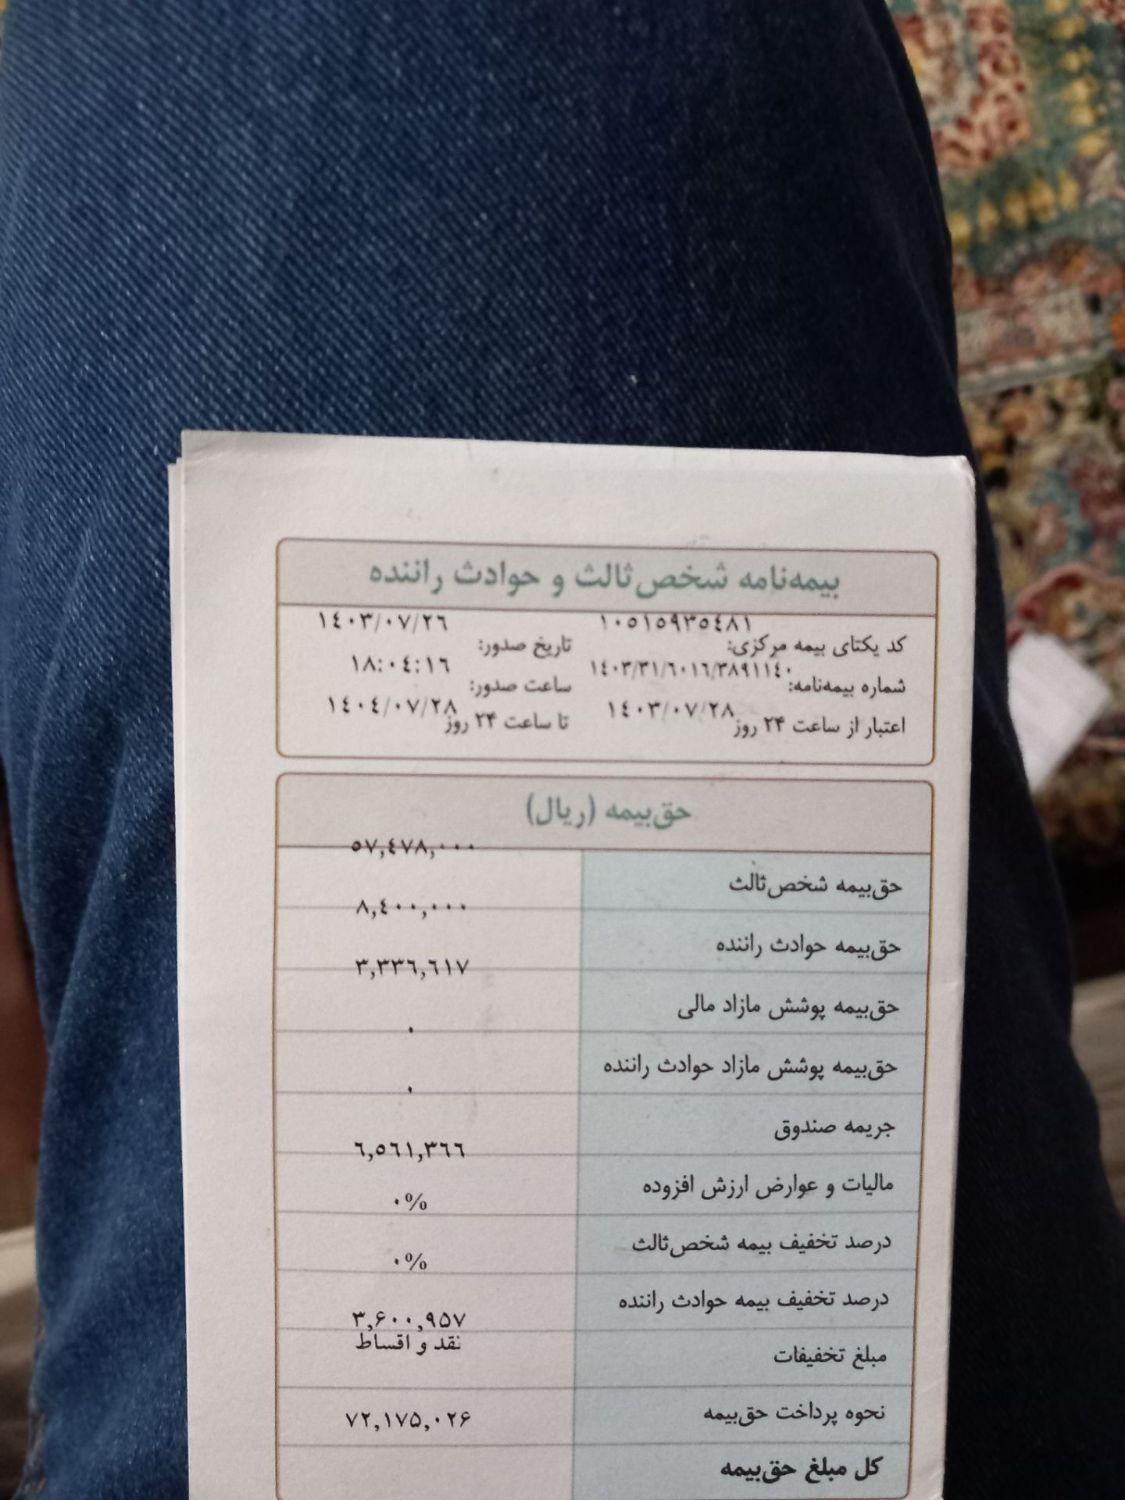 بیمه‌نامه شخص ثالث و حوادث راننده
۱۰۵۱۵۹۳۵٤۸۱ ۱٤۰۳/۰۷/۲٦
کد یکتای بیمه مرکزی: تاریخ صدور:
۱٤۰۳/۳۱/٦۰۱٦/۳۸۹۱۱٤۰ ۱۸:۰٤:۱٦
شماره بیمه‌نامه: ساعت صدور:
۱٤۰۳/۰۷/۲۸ ۱٤۰٤/۰۷/۲۸
اعتبار از ساعت ۲۴ روز تا ساعت ۲۴ روز
حق‌بیمه (ریال)
۵۷,٤۷۸,۰۰۰
حق‌بیمه شخص ثالث
۸,٤۰۰,۰۰۰
حق‌بیمه حوادث راننده
۳,۳۳٦,٦۱۷
حق‌بیمه پوشش مازاد مالی
۰
حق‌بیمه پوشش مازاد حوادث راننده
۰
جریمه صندوق
٦,۵٦۱,۳٦٦
مالیات و عوارض ارزش افزوده
۰%
درصد تخفیف بیمه شخص ثالث
۰%
درصد تخفیف بیمه حوادث راننده
۳,۶۰۰,۹۵۷
نقد و اقساط
مبلغ تخفیفات
نحوه پرداخت حق‌بیمه
۷۲,۱۷۵,۰۲۶
کل مبلغ حق‌بیمه